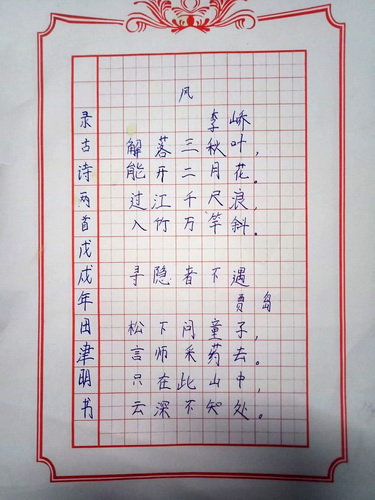 风
李峤
解落三秋叶,
能开二月花。
过江千尺浪,
入竹万竿斜。
寻隐者不遇
贾岛
松下问童子,
言师采药去。
只在此山中,
云深不知处。
录古诗两首戊戌年田津明书